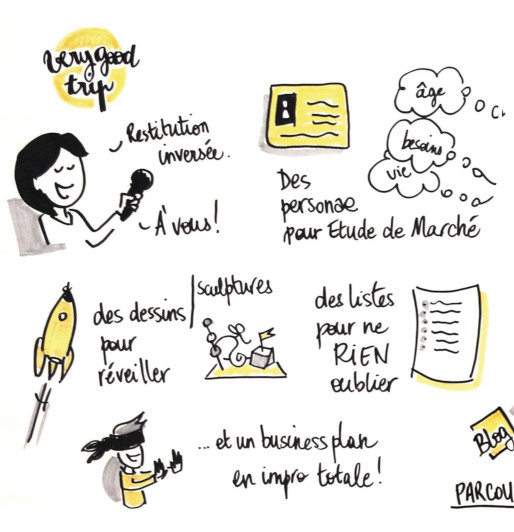 very good
trip
Restitution
inversée.
À vous!
Des
personae
pour Etude de Marché
âge
besoins
vie
des dessins
pour
réveiller
sculptures
des listes
pour ne
RiEN
oublier
... et un business plan
en impro totale!
Blog
PARCOU